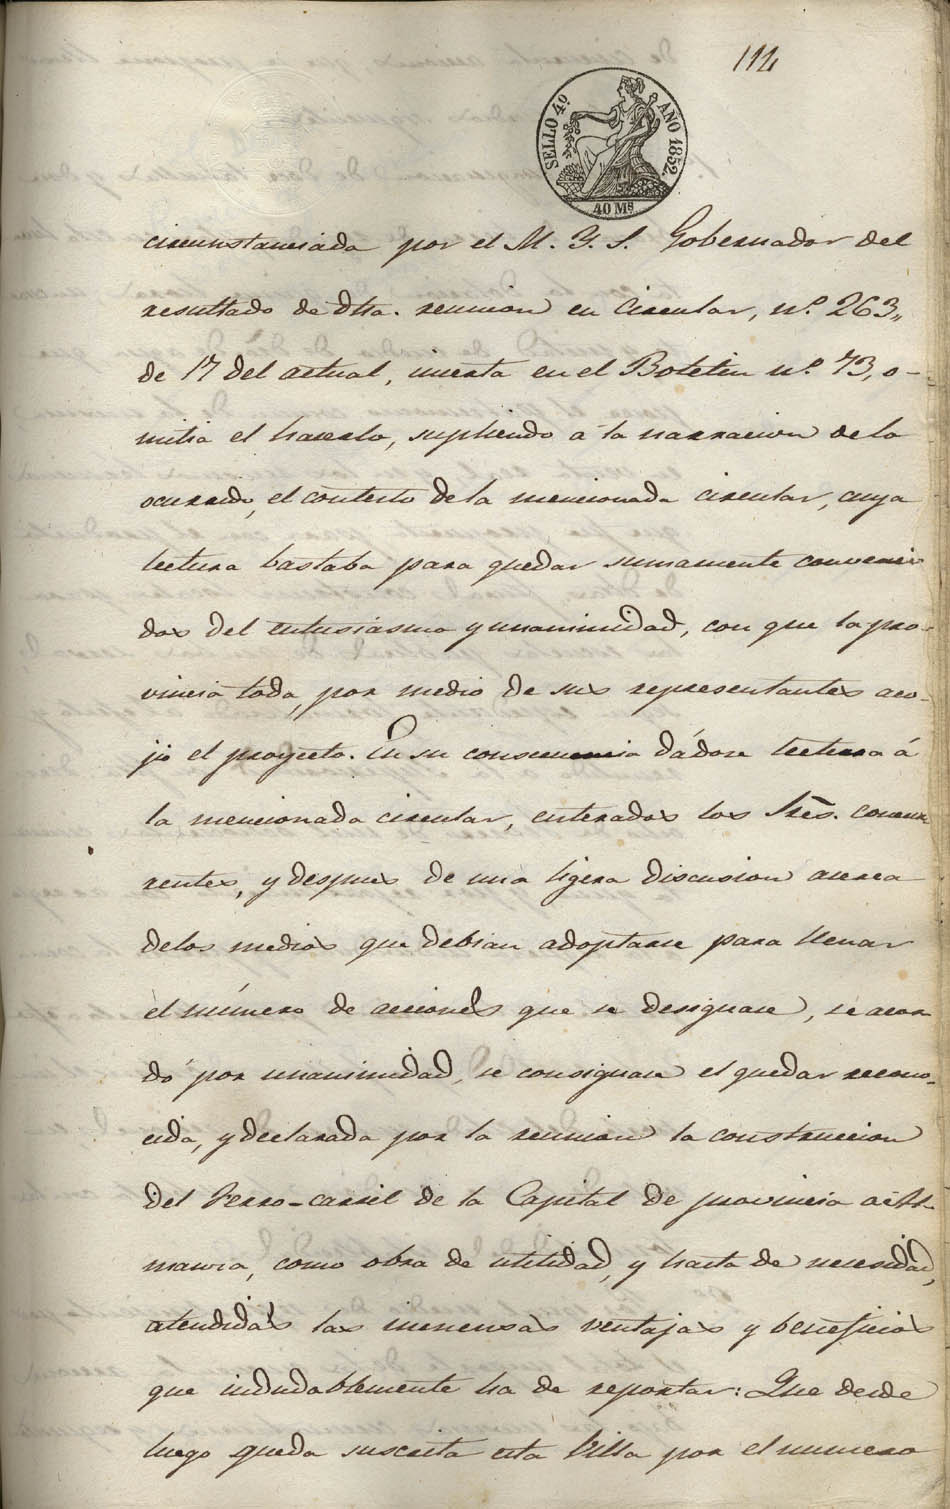 114
SELLO 4º AÑO 1852.
40 Ms
circunstanciada por el M. Y. S. Gobernador del
resultado de dha. reunion en Circular, nº. 263,,
de 17 del actual, inserta en el Boletin nº. 73, o-
mitia el hacerlo, supliendo á la narracion de lo
ocurrido, el contesto de la mencionada circular, cuya
lectura bastaba para quedar sumamente convenci
dos del entusiasmo y unanimidad, con que la pro-
vincia toda, por medio de sus representantes aco-
jio el proyecto. En su consecuencia dádose lectura á
la mencionada circular, enterados los Sres. concur
rentes, y despues de una ligera discusion acerca
delos medios que debian adoptarse para llenar
el número de acciones que se designase, se acor
dó por unanimidad, se consignase el quedar recono-
cida, y declarada por la reunion la construccion
del Ferro-carril de la Capital de provincia a Al-
mansa, como obra de utilidad, y hasta de necesidad,
atendidas las inmensas ventajas y beneficios
que indudablemente ha de reportar: Que desde
luego queda suscrita esta Villa por el numero